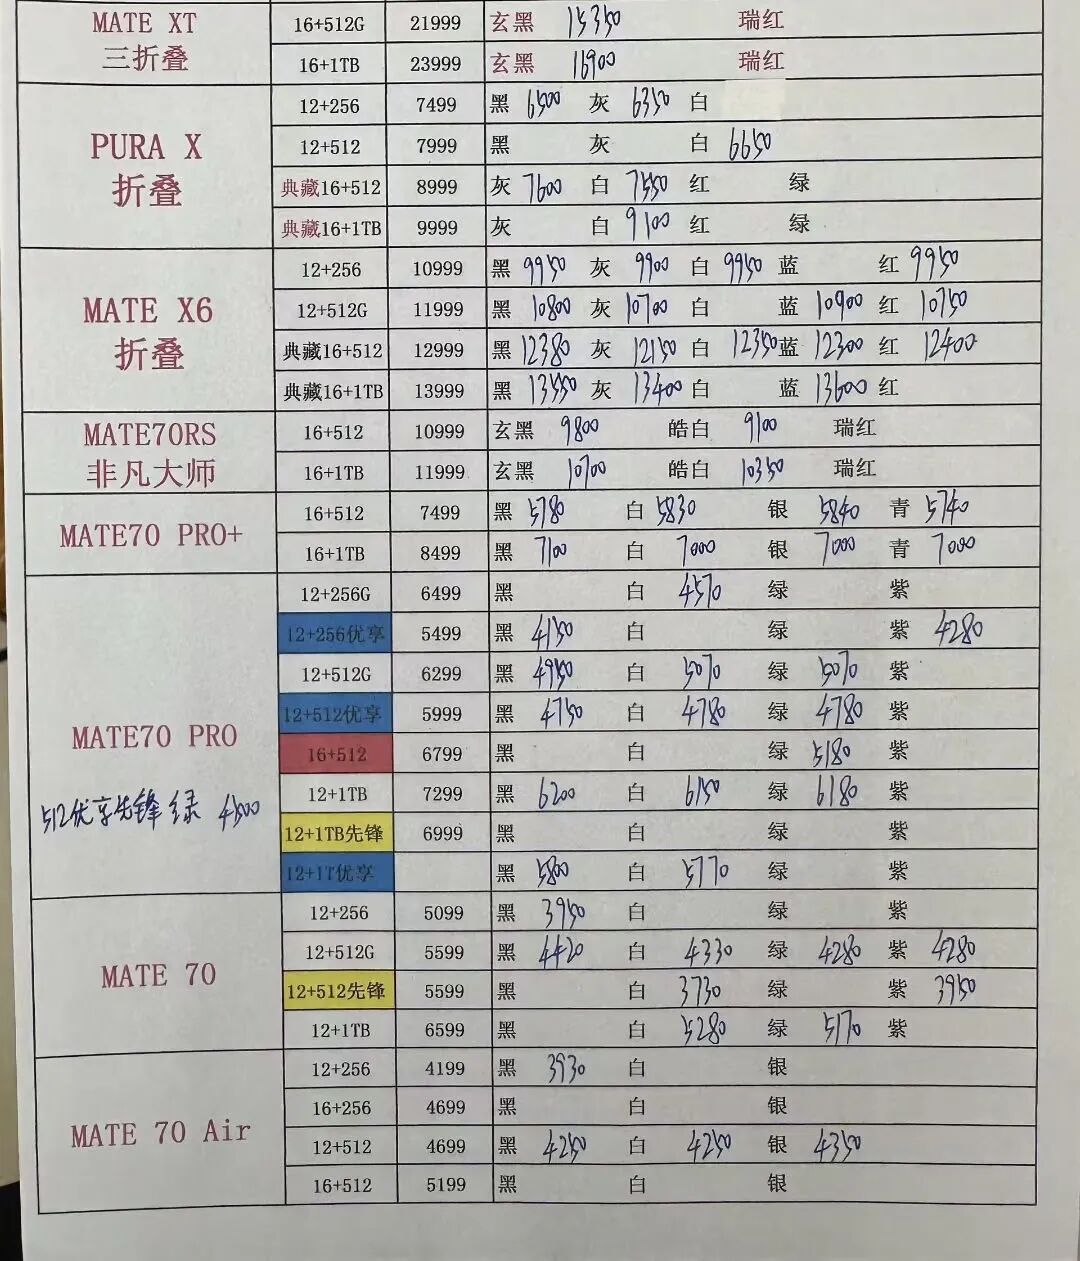 MATE XT
三折叠
16+512G 21999 玄黑 15350 瑞红
16+1TB 23999 玄黑 16900 瑞红
PURA X
折叠
12+256 7499 黑 6500 灰 6350 白
12+512 7999 黑 灰 白 6650
典藏16+512 8999 灰 7600 白 7550 红 绿
典藏16+1TB 9999 灰 白 9100 红 绿
MATE X6
折叠
12+256 10999 黑 9950 灰 9900 白 9950 蓝 红 9950
12+512G 11999 黑 10800 灰 10700 白 蓝 10900 红 10750
典藏16+512 12999 黑 12380 灰 12150 白 12350 蓝 12300 红 12400
典藏16+1TB 13999 黑 13550 灰 13400 白 蓝 13600 红
MATE70RS
非凡大师
16+512 10999 玄黑 9800 皓白 9100 瑞红
16+1TB 11999 玄黑 10700 皓白 10350 瑞红
MATE70 PRO+
16+512 7499 黑 5780 白 5830 银 5840 青 5740
16+1TB 8499 黑 7100 白 7000 银 7000 青 7000
MATE70 PRO
512优享先锋 绿 4500
12+256G 6499 黑 白 4570 绿 紫
12+256优享 5499 黑 4150 白 绿 紫 4280
12+512G 6299 黑 4950 白 5070 绿 5070 紫
12+512优享 5999 黑 4750 白 4780 绿 4780 紫
16+512 6799 黑 白 绿 5180 紫
12+1TB 7299 黑 6200 白 6150 绿 6180 紫
12+1TB先锋 6999 黑 白 绿 紫
12+1T优享 黑 5800 白 5770 绿 紫
MATE 70
12+256 5099 黑 3950 白 绿 紫
12+512G 5599 黑 4420 白 4330 绿 4280 紫 4280
12+512先锋 5599 黑 白 3730 绿 紫 3950
12+1TB 6599 黑 白 5280 绿 5170 紫
MATE 70 Air
12+256 4199 黑 3930 白 银
16+256 4699 黑 白 银
12+512 4699 黑 4250 白 4250 银 4350
16+512 5199 黑 白 银